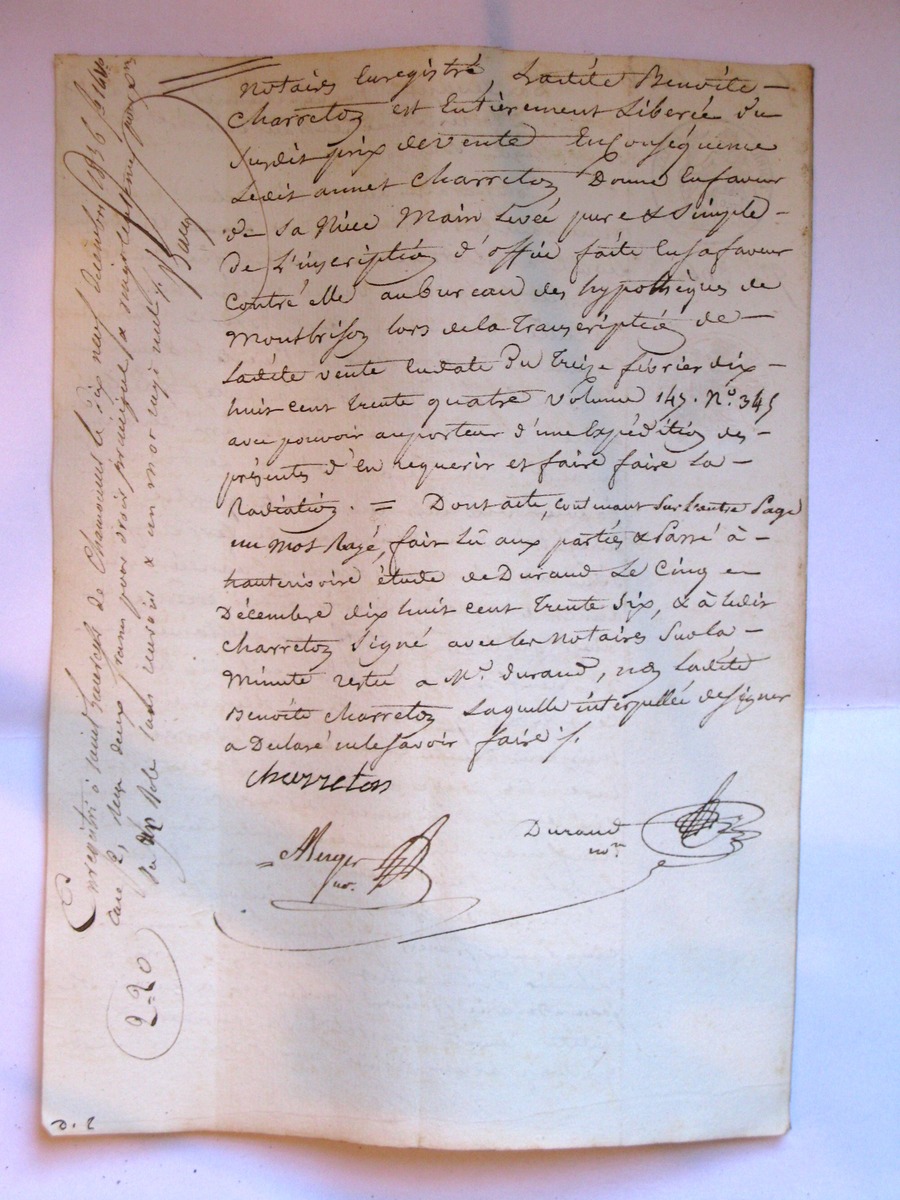 notaires Enregistré, Ladite Benoite
Charreton est Entièrement Liberée du
susdit prix de vente En Conséquence
Ledit annet Charreton Donne En faveur
de sa Niece Main Levée pure & Simple
De L'inscription d'office faite En sa faveur
contre elle au bureau des hypothèques de
Montbrison lors de la Transcription de
Ladite vente En date Du Treize février dix
huit cent trente quatre Volume 145. N.º 345
avec pouvoir au porteur d'une Expédition des
présentes d'En requerir et faire faire La
Radiation. = Dont acte, contenant Sur L'autre Page
un Mot Rayé, fait Lû aux parties & Passé à
hauterivoire étude de Durand Le Cinq
Décembre dix huit cent trente Six, & à Ledit
Charreton Signé avec les Notaires Sur la
Minute restée a Mᵉ. durand, non Ladite
Benoite Charreton Laquelle interpellée de signer
a Declaré ne le savoir faire ./.
Charreton
Merger
no.
Durand
noʳᵉ
Enregistré à Saint de Chamond le dix neuf décembre 1836
Case 2, Reçu deux francs pour droit principal &
sans renvois & un mot rayé nul ./.
2=20